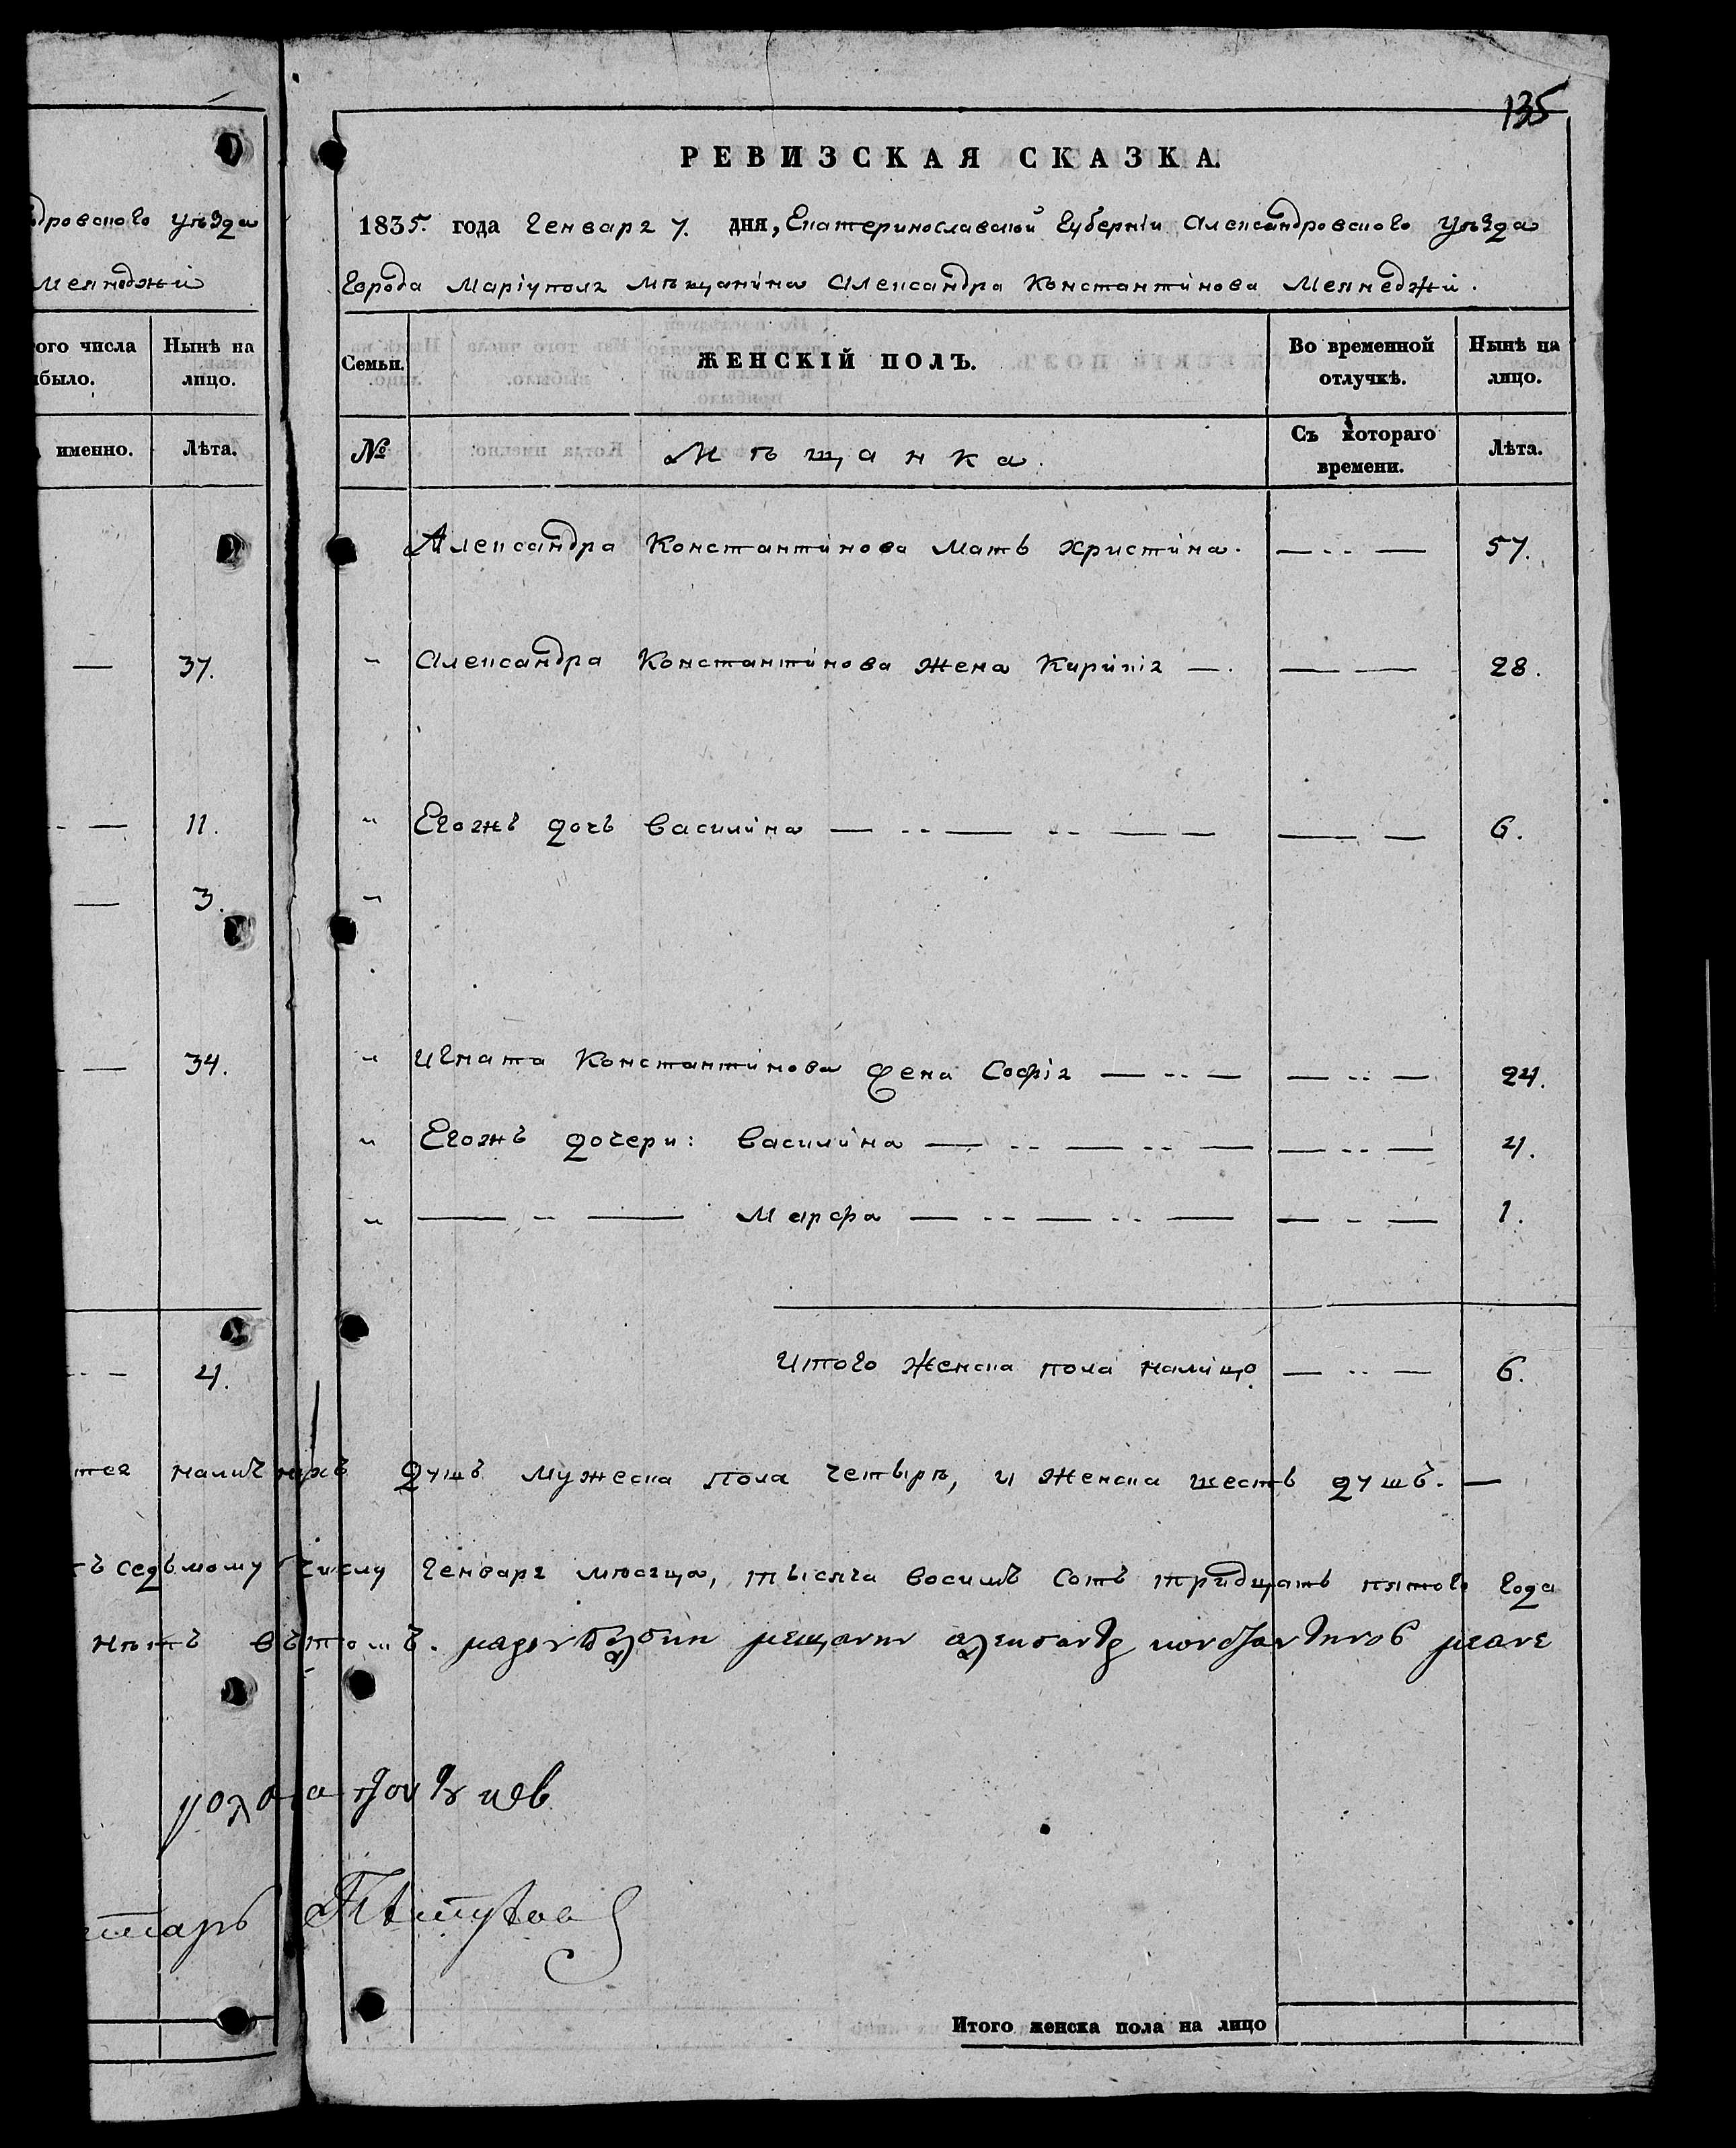 135
дровскаго уѣзда
РЕВИЗСКАЯ СКАЗКА.
1835. года Генваря 7. дня, Екатеринославской Губерніи Александровскаго уѣзда
Города Маріуполя мѣщанина Александра Константинова
ого числа
было.
Нынѣ на
лицо.
Семьи.
ЖЕНСКІЙ ПОЛЪ.
Во временной
отлучкѣ.
Нынѣ на
лицо.
именно.
Лѣта.
№
Мѣщанка.
Съ котораго
времени.
Лѣта.
Александра Константинова мать Христина. — .. — 57.
— 37. " Александра Константинова жена — . — — 28.
- — 11. " Егожъ дочь Василина — .. — .. — — — — 6.
— 3. "
— 34. " Игната Константинова жена Софія — .. — — .. — 24.
" Егожъ дочери: Василина — .. — .. — — .. — 4.
" — .. — Марфа — .. — .. — — .. — 1.
.. — 4. Итого женска пола налицо — .. — 6.
тся наличныхъ душъ мужеска пола четырѣ, и женска шесть душъ. —
ъ седьмому числу Генваря мѣсяца, тысяча восимъ сотъ тридцать пятого года
нѣтъ вътомъ.
Итого женска пола на лицо